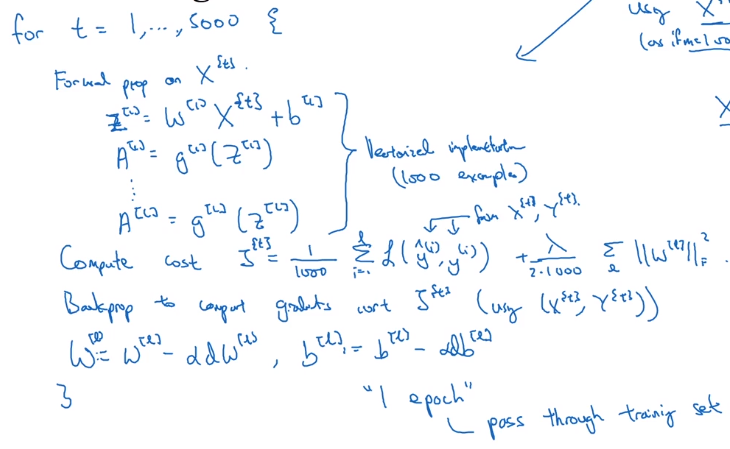 for t = 1,...,5000 {
Forward prop on X^{t}.
Z^[1] = W^[1] X^{t} + b^[1]
A^[1] = g^[1](Z^[1])
⋮
A^[L] = g^[L](Z^[L])
Vectorized implementation
(1000 examples)
from X^{t}, Y^{t}.
Compute cost J^{t} = 1/1000 Σ_{i=1}^{l} L(ŷ^(i), y^(i)) + λ/(2·1000) Σ_l ||W^[l]||_F^2.
Backprop to compute gradients wrt J^{t} (using (X^{t}, Y^{t}))
W^[l] := W^[l] - αdW^[l], b^[l] = b^[l] - αdb^[l]
}
"1 epoch"
pass through training set
using X
(as if
X